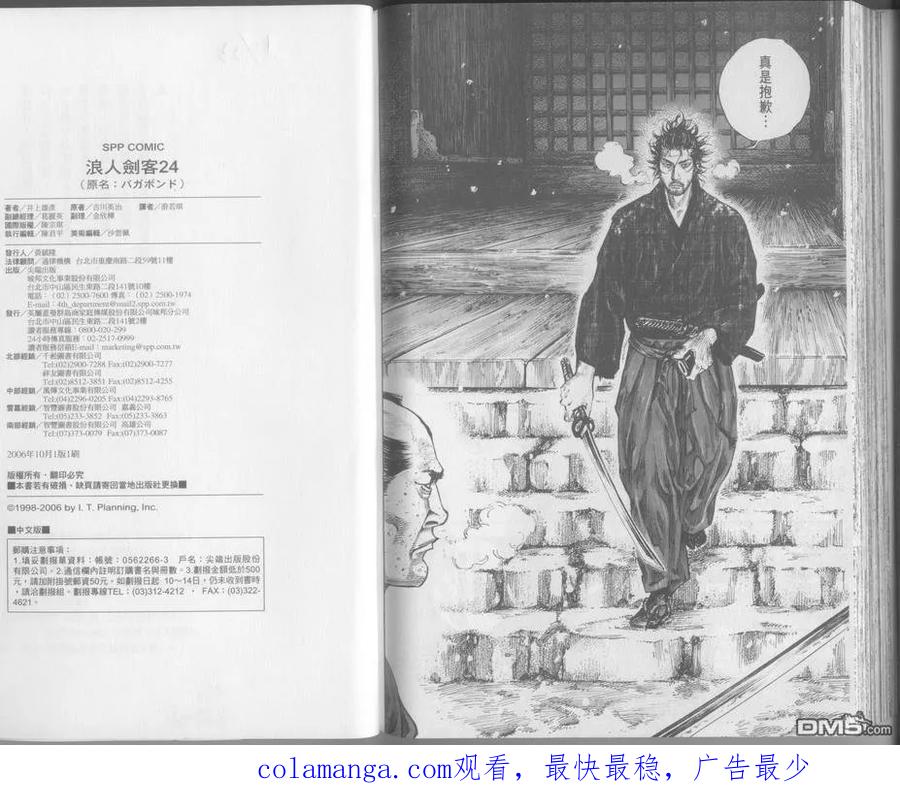 SPP COMIC
浪人劍客24
（原名：バガボンド）
著者／井上雄彥 原著／吉川英治 譯者／游若琪
副總經理／葛麗英 副理／金欣樺
國際版權／陳宗琪
執行編輯／陳君平 美術編輯／沙雲佩
發行人／黃鎮隆
法律顧問／通律機構 台北市重慶南路二段59號11樓
出版／尖端出版
城邦文化事業股份有限公司
台北市中山區民生東路二段141號10樓
電話：（02）2500-7600 傳真：（02）2500-1974
E-mail：4th_department@mail2.spp.com.tw
發行／英屬蓋曼群島商家庭傳媒股份有限公司城邦分公司
台北市中山區民生東路二段141號2樓
讀者服務專線：0800-020-299
24小時傳真服務：02-2517-0999
讀者服務信箱E-mail：marketing@spp.com.tw
北部經銷／千淞圖書有限公司
Tel:(02)2900-7288 Fax:(02)2900-7277
祥友圖書有限公司
Tel:(02)8512-3851 Fax:(02)8512-4255
中部經銷／風傳文化事業有限公司
Tel:(04)2296-0205 Fax:(04)2293-8765
雲嘉經銷／智豐圖書股份有限公司 嘉義公司
Tel:(05)233-3852 Fax:(05)233-3863
南部經銷／智豐圖書股份有限公司 高雄公司
Tel:(07)373-0079 Fax:(07)373-0087
2006年10月1版1刷
版權所有・翻印必究
■本書若有破損、缺頁請寄回當地出版社更換■
©1998-2006 by I. T. Planning, Inc.
■中文版■
郵購注意事項：
1.填妥劃撥單資料：帳號：0562266-3 戶名：尖端出版股份
有限公司。2.通信欄內註明訂購書名與冊數。3.劃撥金額低於500
元，請加附掛號郵資50元。如劃撥日起 10～14日，仍未收到書時
，請洽劃撥組。劃撥專線TEL：(03)312-4212 ・ FAX：(03)322-
4621。
真是抱歉…
DM5.com
colamanga.com观看，最快最稳，广告最少